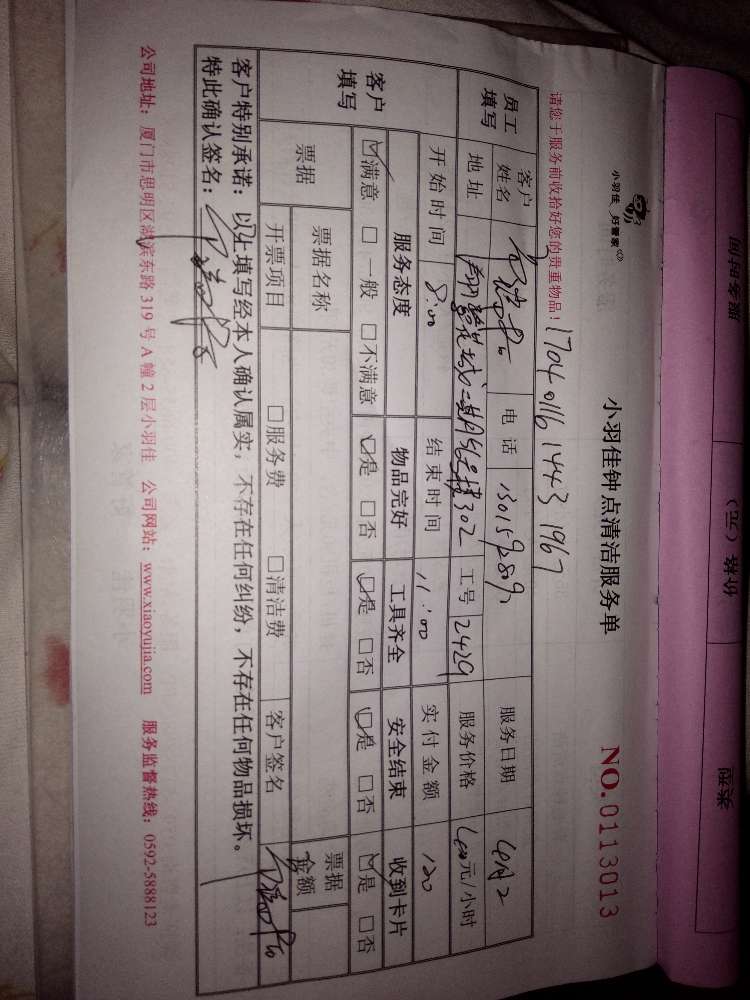 小羽佳 好管家
小羽佳钟点清洁服务单
NO.0113013
请您于服务前收拾好您的贵重物品！ 1704 0116 1443 1967
员工填写 客户姓名 电话 服务日期
地址 302 工号 2429 服务价格 元/小时
开始时间 8:00 结束时间 11:00 实付金额 120
客户填写 服务态度 物品完好 工具齐全 安全结束 收到卡片
☑满意 □一般 □不满意 ☑是 □否 ☑是 □否 ☑是 □否 ☑是 □否
票据 票据名称 票据金额
开票项目 □服务费 □清洁费 客户签名
客户特别承诺：以上填写经本人确认属实，不存在任何纠纷，不存在任何物品损坏。
特此确认签名：
公司地址：厦门市思明区湖滨东路 319 号 A 幢 2 层小羽佳 公司网站：www.xiaoyujia.com 服务监督热线：0592-5888123